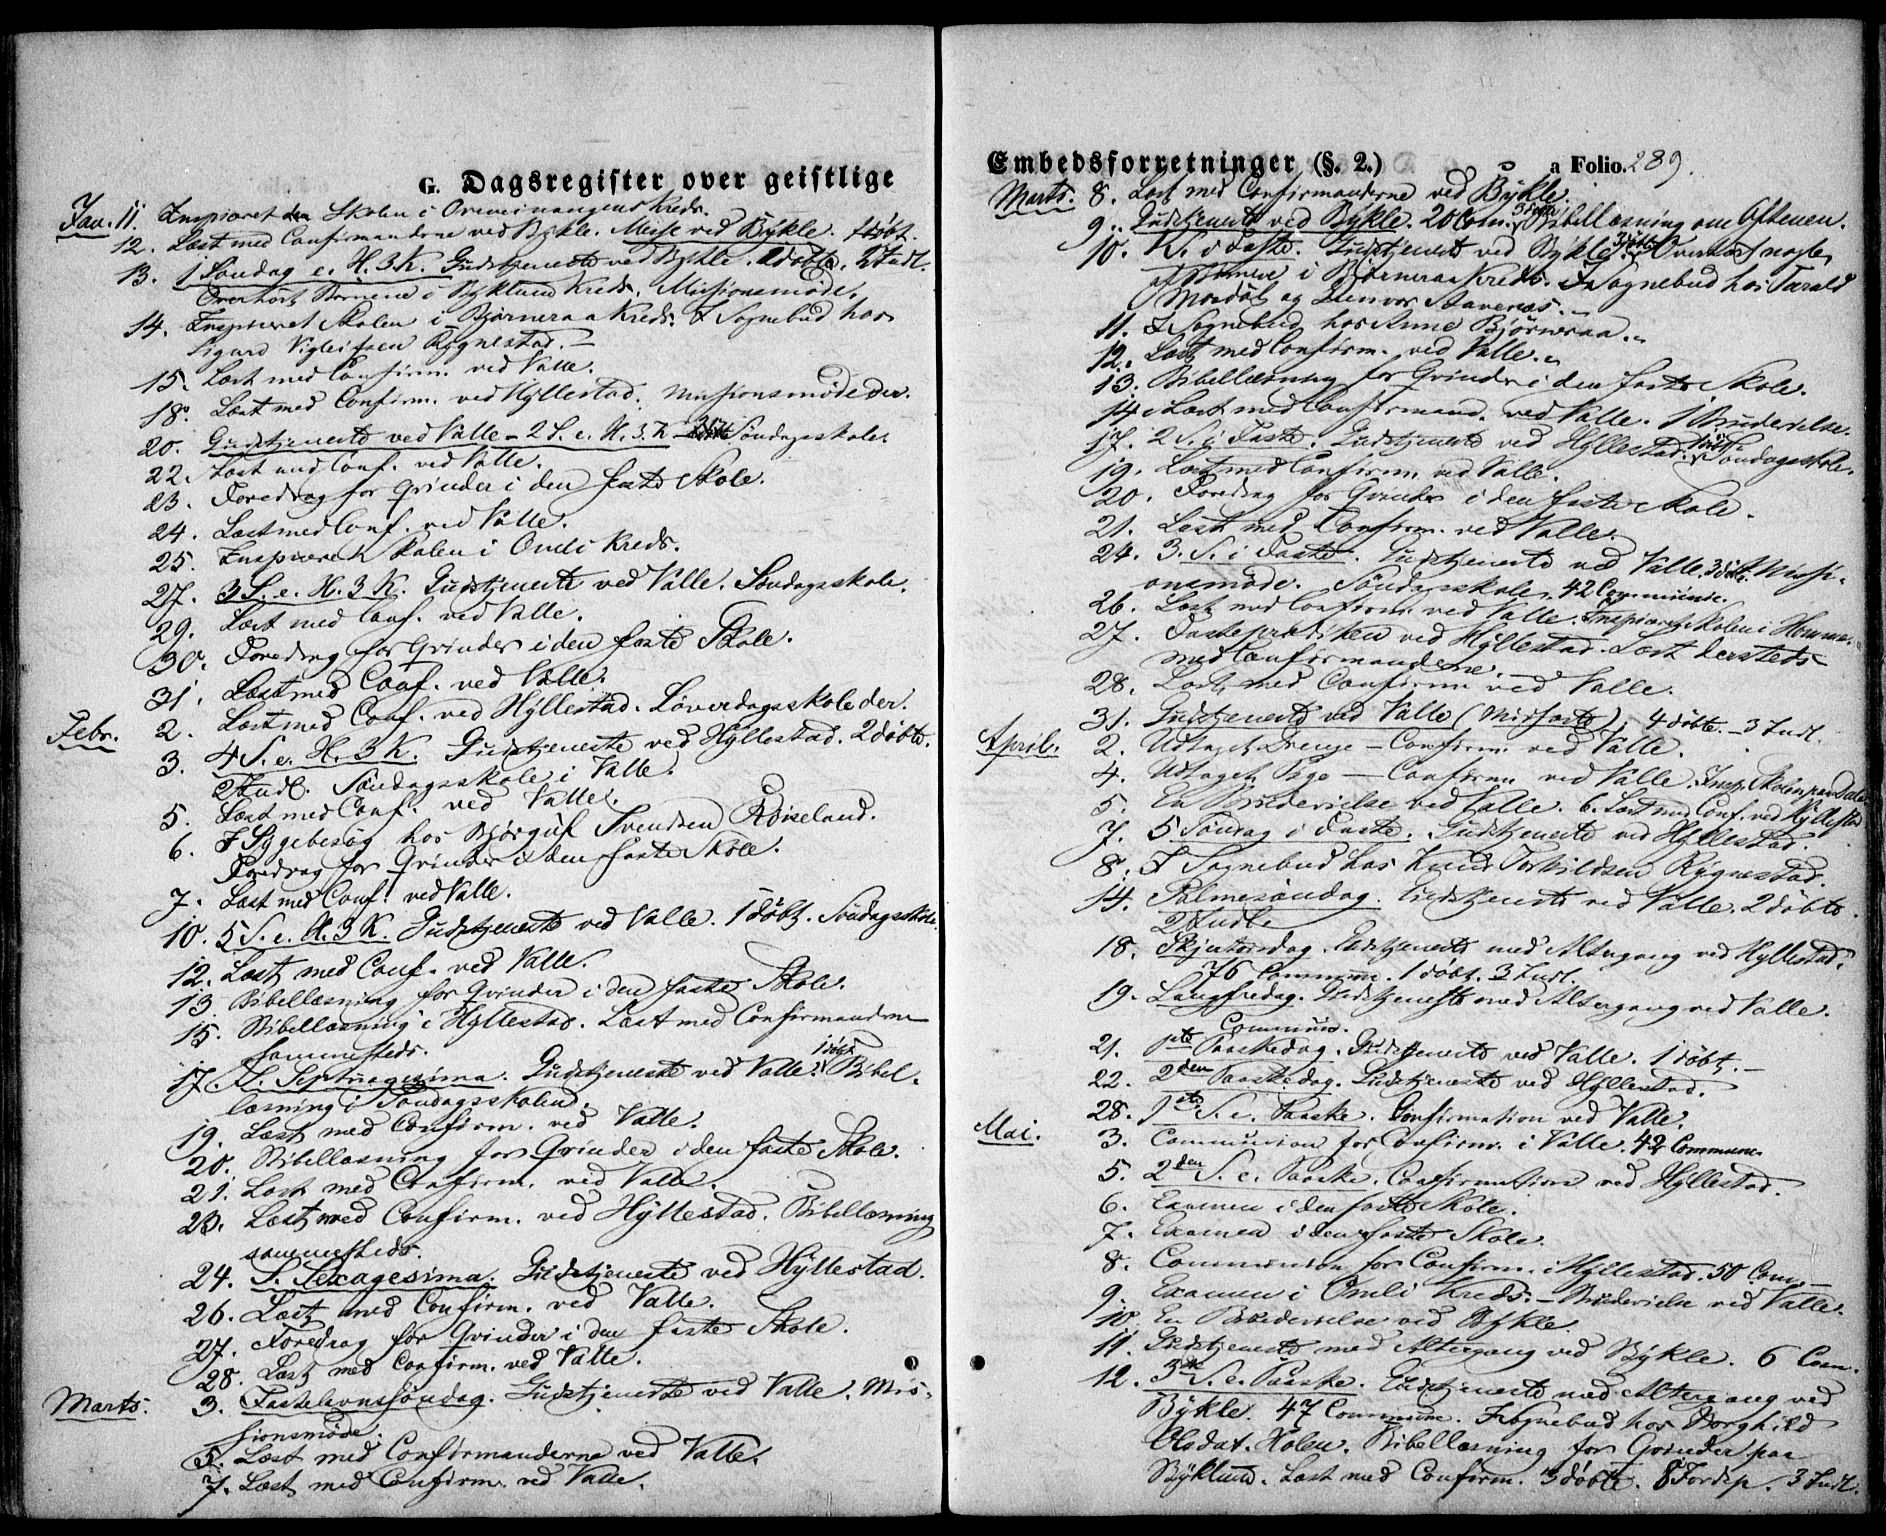 G. Dagsregister over geistlige
Jan. 11. Inspiceret Skolen i Kreds.
12. Læst med Confirmanderne ved Bykle. Messe ved Bykle. 1 døbt.
13. 1 Søndag e. H. 3 K. Gudstjeneste ved Bykle. 2 døbte. 2 Indl.
Overhørt Børnene i Byklum Kreds. Missionsmøde.
14. Inspiceret Skolen i Bjørneraa Kreds. I Sognebud hos
Sigurd Vigleiksen Rygnestad. –
15. Læst med Confirm. ved Valle.
18. Læst med Confirm. ved Hyllestad. Missionsmøde der.
20. Gudstjeneste ved Valle – 2 S. e. H. 3. K – Søndagsskole.
22. Læst med Conf. ved Valle.
23. Foredrag for Qvinder i den faste Skole.
24. Læst med Conf. ved Valle.
25. Inspiceret Skolen i Omli Kreds.
27. 3 S. e. H. 3 K. Gudstjeneste ved Valle. Søndagsskole.
29. Læst med Conf. ved Valle.
30. Foredrag for Qvinder i den faste Skole.
31. Læst med Conf. ved Valle.
Febr. 2. Læst med Conf. ved Hyllestad. Løverdagsskole der.
3. 4 S. e. H. 3 K. Gudstjeneste ved Hyllestad. 2 døbte.
2 Indl. Søndagsskole i Valle.
5. Læst med Conf. ved Valle.
6. I Sygebesøg hos Bjørgulf Svendsen Røiseland.
Foredrag for Qvinder i den faste Skole.
7. Læst med Conf. ved Valle.
10. 5 S. e. H. 3 K. Gudstjeneste ved Valle. 1 døbt. Søndagsskole.
12. Læst med Conf. ved Valle.
13. Bibellæsning for Qvinder i den faste Skole.
15. Bibellæsning i Hyllestad. Læst med Confirmanderne
sammesteds.
17. S. Septuagesima. Gudstjeneste ved Valle. 1 døbt. Bibel-
læsning i Søndagsskolen.
19. Læst med Confirm. ved Valle.
20. Bibellæsning for Qvinder i den faste Skole.
21. Læst med Confirm. ved Valle.
23. Læst med Confirm. ved Hyllestad. Bibellæsning
sammesteds.
24. S. Sexagesima. Gudstjeneste ved Hyllestad.
26. Læst med Confirm. ved Valle.
27. Foredrag for Qvinder i den faste Skole.
28. Læst med Confirm. ved Valle.
Marts. 3. Fastelavnssøndag. Gudstjeneste ved Valle. Mis-
sionsmøde.
5. Læst med Confirmanderne ved Valle.
7. Læst med Confirm. ved Valle.
Embedsforretninger (§. 2.) a Folio. 289.
Marts. 8. Læst med Confirmanderne ved Bykle.
9. Gudstjeneste ved Bykle. 20 Com. Bibellæsning om Aftenen.
10. 1 S. i Faste. Gudstjeneste ved Bykle. 3 døbte. Overhørt nogle
af Børnene i Bjørneraa Kreds. I Sognebud hos Tarald
Mosdøl og Gunvor Stavenæs. –
11. I Sognebud hos Anne Bjørneraa. –
12. Læst med Confirm. ved Valle. –
13. Bibellæsning for Qvinder i den faste Skole.
14. Læst med Confirmand. ved Valle. 1 Brudevielse.
17. 2 S. i Faste. Gudstjeneste ved Hyllestad. 1 døbt. Søndagsskole.
19. Læst med Confirm. ved Valle.
20. Foredrag for Qvinder i den faste Skole.
21. Læst med Confirm. ved Valle.
24. 3. S. i Faste. Gudstjeneste ved Valle. 3 døbte. Missi-
onsmøde. Søndagsskole. 42 Communic.
26. Læst med Confirm. ved Valle. Inspiceret Skolen i Homme.
27. Fasteprædiken ved Hyllestad. Læst dersteds
med Confirmanderne.
28. Læst med Confirm ved Valle.
31. Gudstjeneste ved Valle (Midfaste). 4 døbte. – 3 Indl.
April. 2. Udtaget Drenge – Confirm. ved Valle.
4. Udtaget Pige – Confirm ved Valle. Insp. Skolen paa Dale
5. En Brudevielse ved Valle. 6. Læst med Conf. ved Hyllestad
7. 5 Søndag i Faste. Gudstjeneste ved Hyllestad.
8. I Sognebud hos Knud Torkildsen Rygnestad.
14. Palmesøndag. Gudstjeneste ved Valle. 2 døbte.
2 Indl.
18. Skjærtorsdag. Gudstjeneste med Altergang ved Hyllestad.
76 Commun. 1 døbt. 3 Indl.
19. Langfredag. Gudstjeneste med Altergang ved Valle.
Commun.
21. 1ste Paaskedag. Gudstjeneste ved Valle. 1 døbt. –
22. 2den Paaskedag. Gudstjeneste ved Hyllestad.
28. 1ste S. e. Paaske. Confirmation ved Valle.
Mai. 3. Communion for Confirm. i Valle. 42 Commun.
5. 2den S. e. Paaske. Confirmation ved Hyllestad.
6. Examen i den faste Skole.
7. Examen i den faste Skole.
8. Communion for Confirm. i Hyllestad. 50 Com. –
9. Examen i Omli Kreds. – Brudevielse ved Valle.
10. En Brudevielse ved Bykle.
11. Gudstjeneste med Altergang ved Bykle. 6 Com.
12. 3die S. e. Paaske. Gudstjeneste med Altergang ved
Bykle. 47 Commun. I Sognebud hos Borghild
Olsdat. Holen. Bibellæsning for Qvinder paa
Byklum. Læst med Confirm. 3 døbte. 8 Jordsp. 3 Indl.